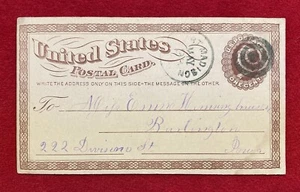 United States
POSTAL CARD.
WRITE THE ADDRESS ONLY ON THIS SIDE - THE MESSAGE ON THE OTHER
MADISON
ONE CENT
To Miss Emma
Burlington
222 Division St